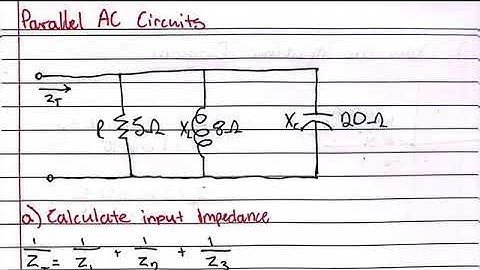 Parallel AC Circuits
Z_T R 5Ω X_L 8Ω X_C 20Ω
a) Calculate input Impedance
1/Z_T = 1/Z_1 + 1/Z_2 + 1/Z_3